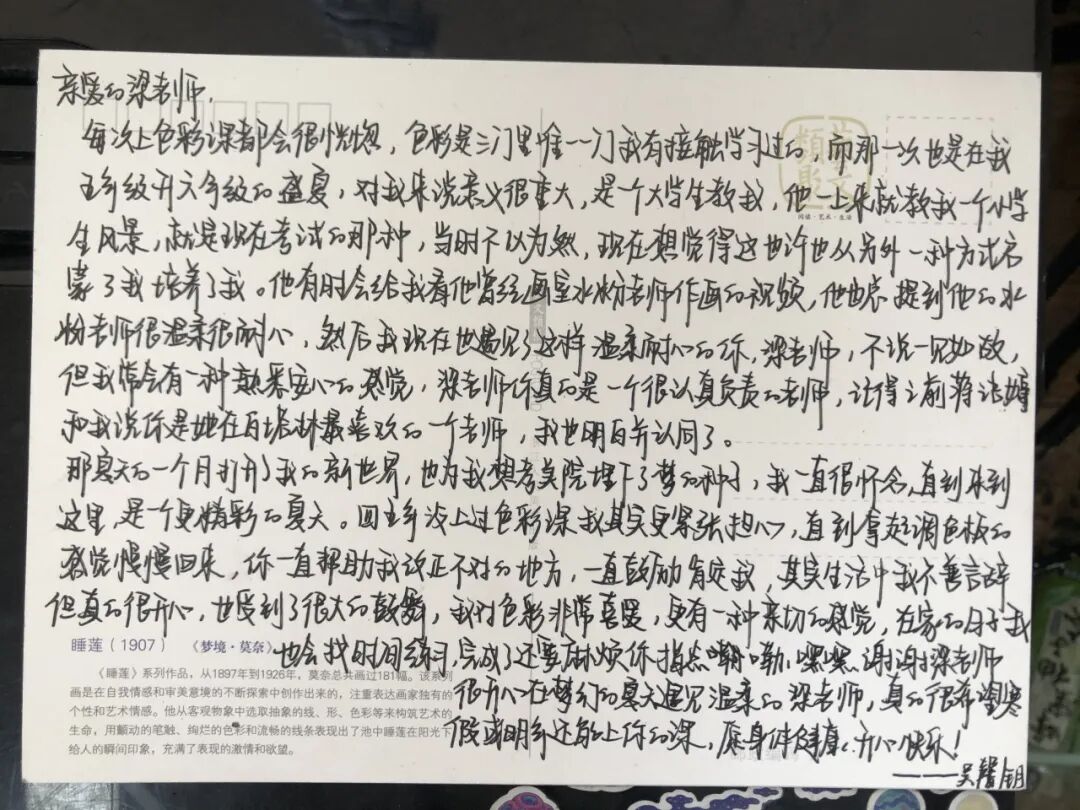 亲爱的梁老师，
每次上色彩课都会很恍惚，色彩是三门里唯一一门我有接触学习过的，而那一次也是在我
五年级升六年级的盛夏，对我来说意义很重大，是一个大学生教我，他一上来就教我一个小学
生风景，就是现在考试的那种，当时不以为然，现在想觉得这也许也从另外一种方式启
蒙了我培养了我。他有时会给我看他曾经画室水粉老师作画的视频，他也总提到他的水
粉老师很温柔很耐心，然后我现在也遇见了这样温柔耐心的你，梁老师，不说一见如故，
但我常会有一种熟悉安心的感觉，梁老师你真的是一个很认真负责的老师，记得之前蒋洁婷
和我说你是她在白塔林最喜欢的一个老师，我也明白并认同了。
那夏天的一个月打开了我的新世界，也为我想考美院埋下了梦的种子，我一直很怀念，直到来到
这里，是一个更精彩的夏天。回五年没上过色彩课我其实更紧张担心，直到拿起调色板的
感觉慢慢回来，你一直帮助我改正不对的地方，一直鼓励肯定我，其实生活中我不善言辞
但真的很开心，也受到了很大的鼓舞，我对色彩非常喜爱，更有一种亲切的感觉，在家的日子我
也会找时间练习，完成了还要麻烦你指点嘞嘞，嘿嘿，谢谢梁老师
很开心在梦幻的夏天遇见温柔的梁老师，真的很希望寒
假或明年还能上你的课，愿身体健康，开心快乐！
——吴馨钥
睡莲（1907） 《梦境·莫奈》
《睡莲》系列作品，从1897年到1926年，莫奈总共画过181幅。该系列
画是在自我情感和审美意境的不断探索中创作出来的，注重表达画家独有的
个性和艺术情感。他从客观物象中选取抽象的线、形、色彩等来构筑艺术的
生命，用颤动的笔触、绚烂的色彩和流畅的线条表现出了池中睡莲在阳光下
给人的瞬间印象，充满了表现的激情和欲望。
阅读·艺术·生活